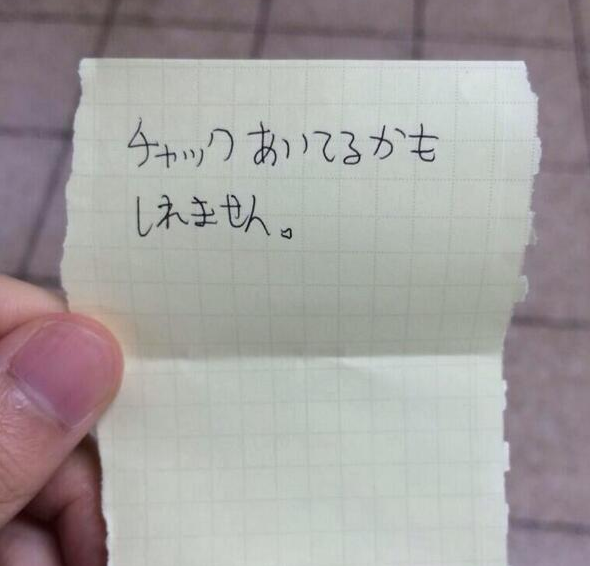 チャックあいてるかも
しれません。